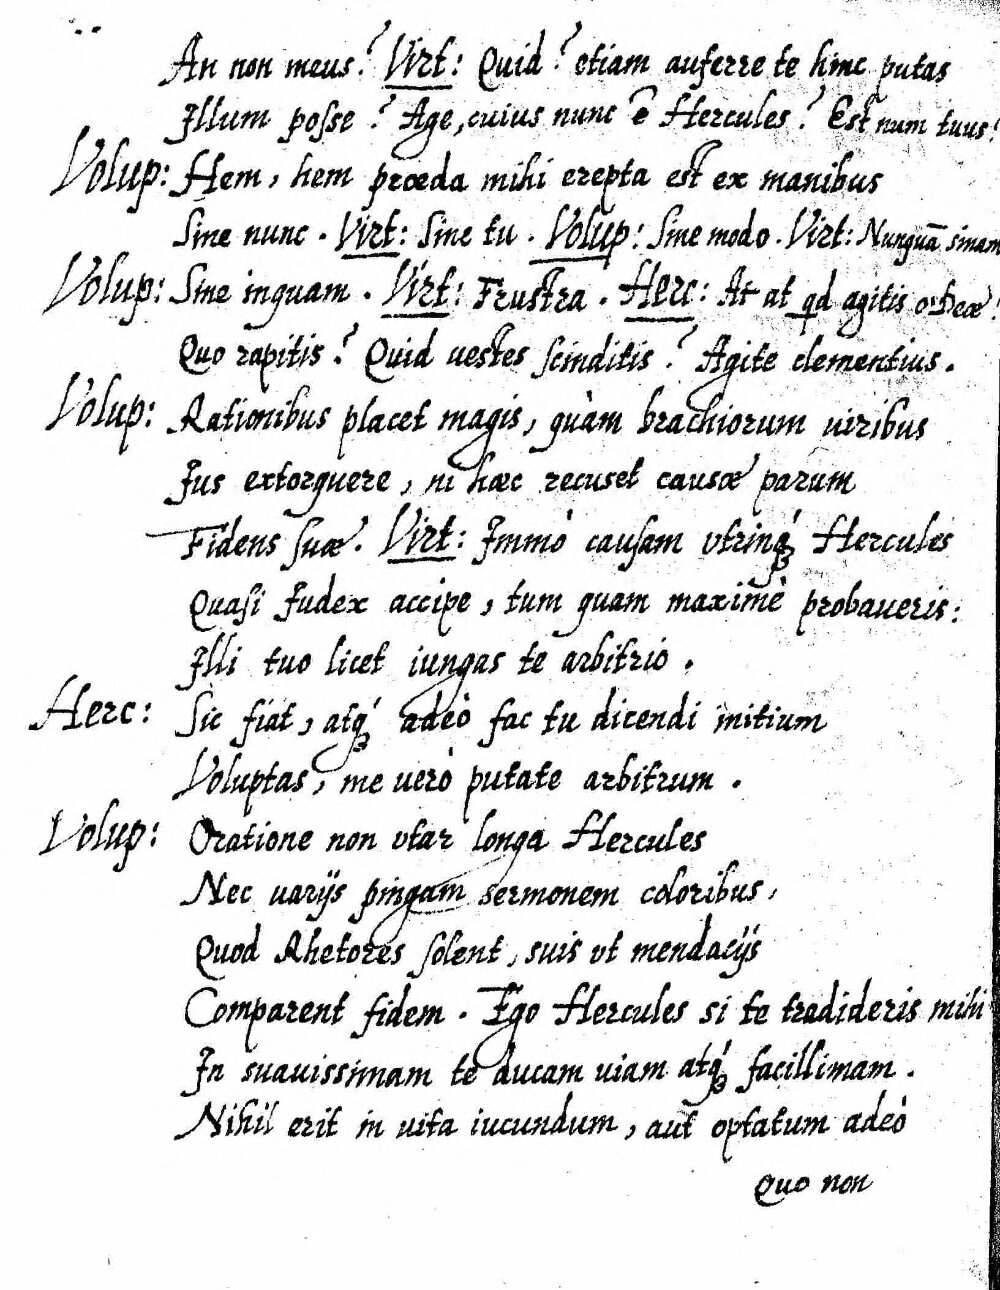 An non meus? Virt: Quid? etiam auferre te hinc putas
Illum posse? Age, cuius nunc ē Hercules? Est num tuus?
Volup: Hem, hem præda mihi erepta est ex manibus
Sine nunc. Virt: Sine tu. Volup: Sine modo. Virt: Nunquā sinam
Volup: Sine inquam. Virt: Frustra. Herc: At at qd agitis o Deæ?
Quo rapitis? Quid uestes scinditis? Agite clementius.
Volup: Rationibus placet magis, quàm brachiorum uiribus
Jus extorquere, ni hæc recuset causæ parum
Fidens suæ. Virt: Immò causam vtrinqꝫ Hercules
Quasi Judex accipe, tum quam maximè probaueris:
Illi tuo licet iungas te arbitrio.
Herc: Sic fiat, atqꝫ adeò fac tu dicendi initium
Voluptas, me uerò putate arbitrum.
Volup: Oratione non vtar longa Hercules
Nec uarijs pingam sermonem coloribus,
Quod Rhetores solent, suis vt mendacijs
Comparent fidem. Ego Hercules si te tradideris mihi
In suauissimam te ducam uiam atqꝫ facillimam.
Nihil erit in uita iucundum, aut optatum adeò
Quo non